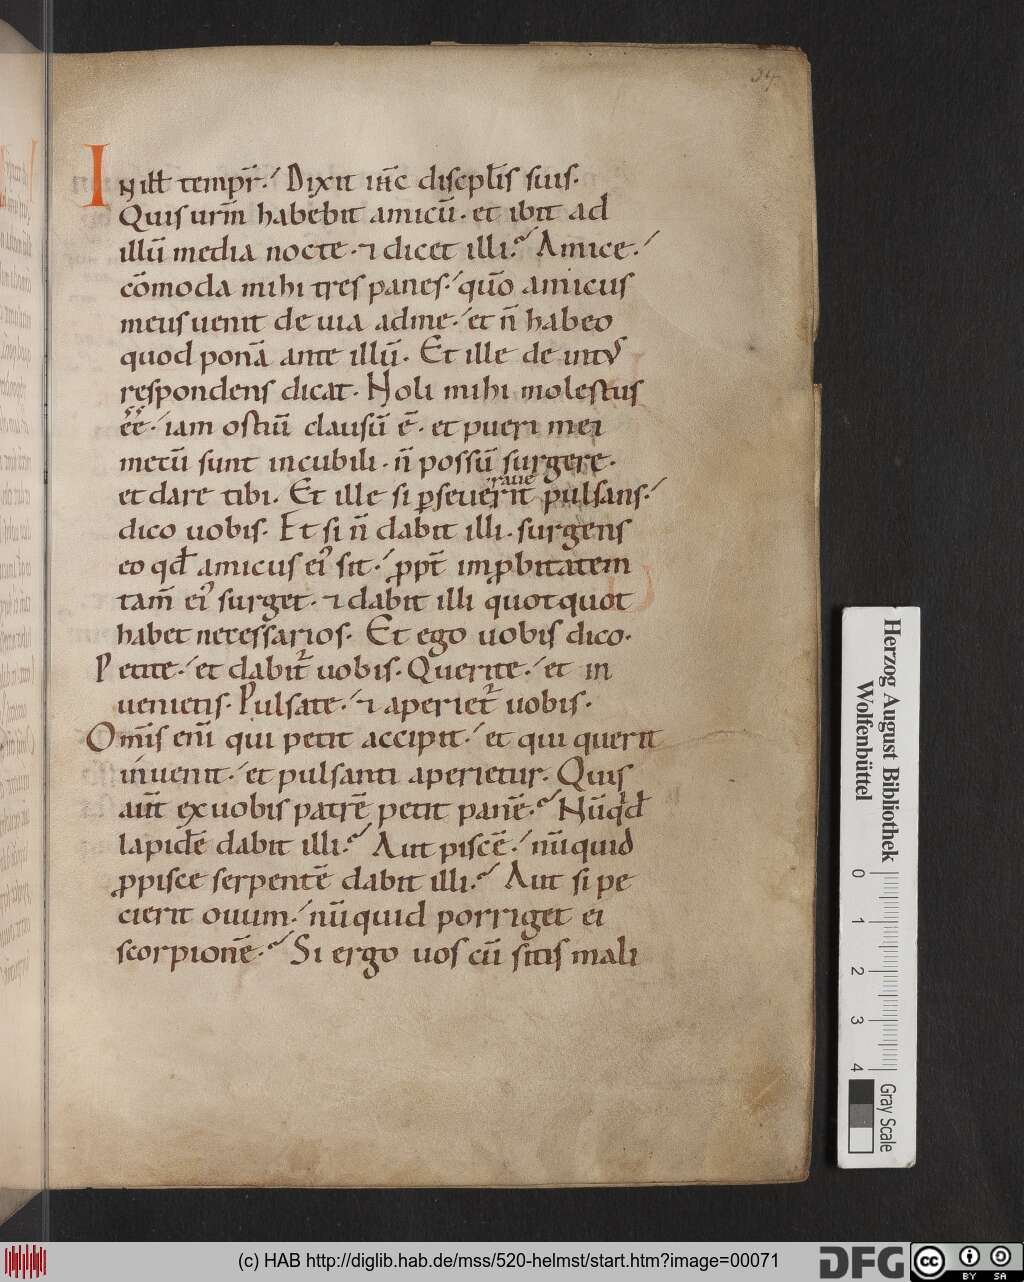 34
IN ill̄ temp̄r. Dixit ih̄c discepl̄is suis.
Quis ur̄m habebit amicū. et ibit ad
illū media nocte. ⁊ dicet illi. Amice.
cōmoda mihi tres panes. qūo amicus
meus uenit de uia ad me. et n̄ habeo
quod ponā ante illū. Et ille de intꝰ
respondens dicat. Noli mihi molestus
ēe. iam ostiū clausū ē. et pueri mei
mecū sunt in cubili. n̄ possū surgere.
et dare tibi. Et ille si ꝑseuerit pulsans.
raue
dico uobis. Et si n̄ dabit illi. surgens
eo qd̄ amicus eiꝰ sit. ꝓpt̄ inꝓbitatem
tam̄ eiꝰ surget. ⁊ dabit illi quotquot
habet necessarios. Et ego uobis dico.
Petite. et dabit᷑ uobis. Querite. et in
uenietis. Pulsate. ⁊ aperiet᷑ uobis.
Om̄is enī qui petit accipit. et qui querit
inuenit. et pulsanti aperietur. Quis
aut̄ ex uobis patrē petit panē. Nūqd̄
lapidē dabit illi. Aut piscē. nūquid
ꝓ pisce serpentē dabit illi. Aut si pe
cierit ouum. nūquid porriget ei
scorpionē. Si ergo uos cū sitis mali
Herzog August Bibliothek
Wolfenbüttel
0 1 2 3 4
Gray Scale
(c) HAB http://diglib.hab.de/mss/520-helmst/start.htm?image=00071
DFG
cc BY SA